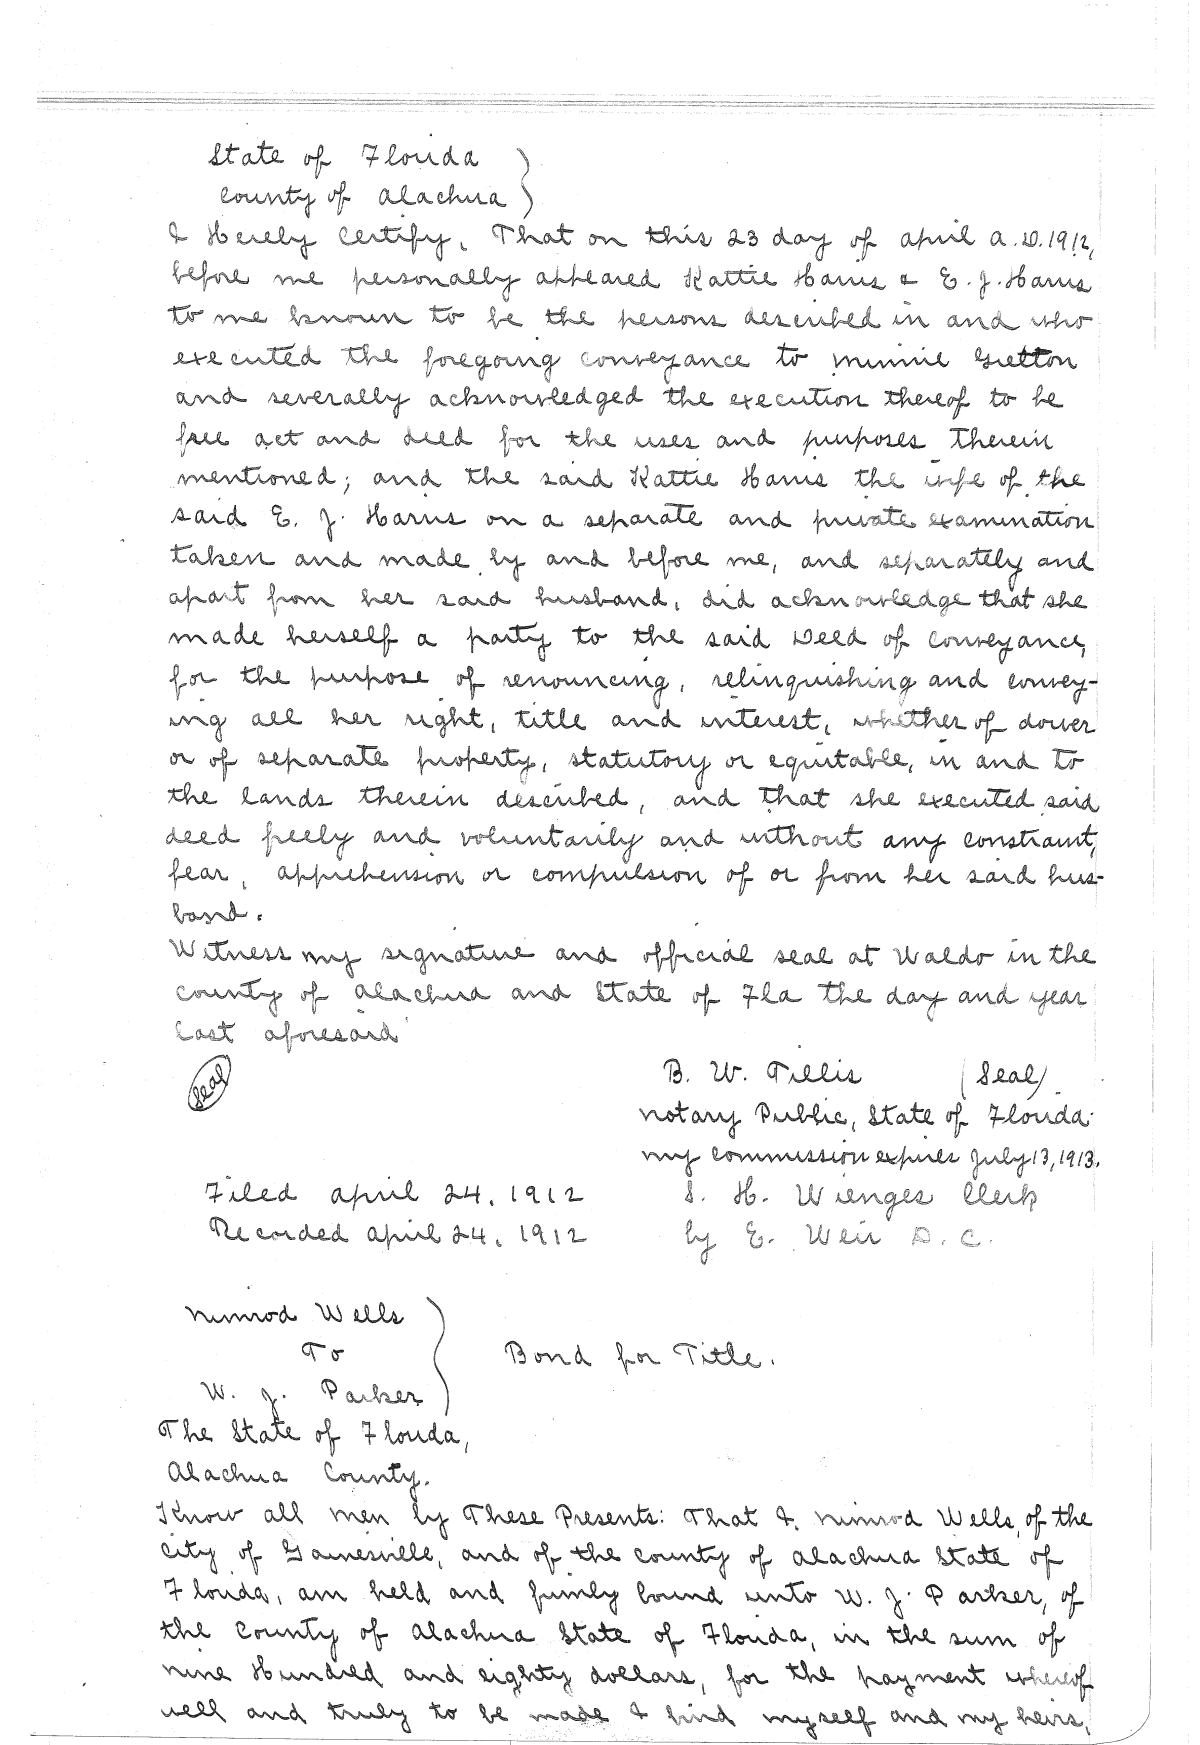 State of Florida )
County of Alachua )
I Hereby Certify, That on this 23 day of april a.D. 1912,
before me personally appeared Kattie Harris & E. J. Harris
to me known to be the persons described in and who
executed the foregoing conveyance to Minnie Gretton
and severally acknowledged the execution thereof to be
free act and deed for the uses and purposes therein
mentioned; and the said Kattie Harris the wife of the
said E. J. Harris on a separate and private examination
taken and made by and before me, and separately and
apart from her said husband, did acknowledge that she
made herself a party to the said Deed of Conveyance,
for the purpose of renouncing, relinquishing and convey-
ing all her right, title and interest, whether of dower
or of separate property, statutory or equitable, in and to
the lands therein described, and that she executed said
deed freely and voluntarily and without any constraint,
fear, apprehension or compulsion of or from her said hus-
band.
Witness my signature and official seal at Waldo in the
County of Alachua and State of Fla the day and year
last aforesaid
Seal
B. W. Tillis (Seal)
Notary Public, State of Florida
my commission expires July 13, 1913.
Filed april 24, 1912 S. H. Wienges Clerk
Recorded april 24, 1912 by E. Weir D. C.
Nimrod Wells
To
Bond for Title.
W. J. Parker
The State of Florida,
Alachua County.
Know all men by These Presents: That I, Nimrod Wells, of the
city of Gainesville, and of the county of Alachua State of
Florida, am held and firmly bound unto W. J. Parker, of
the County of Alachua State of Florida, in the sum of
nine Hundred and eighty dollars, for the payment whereof
well and truly to be made I bind myself and my heirs,